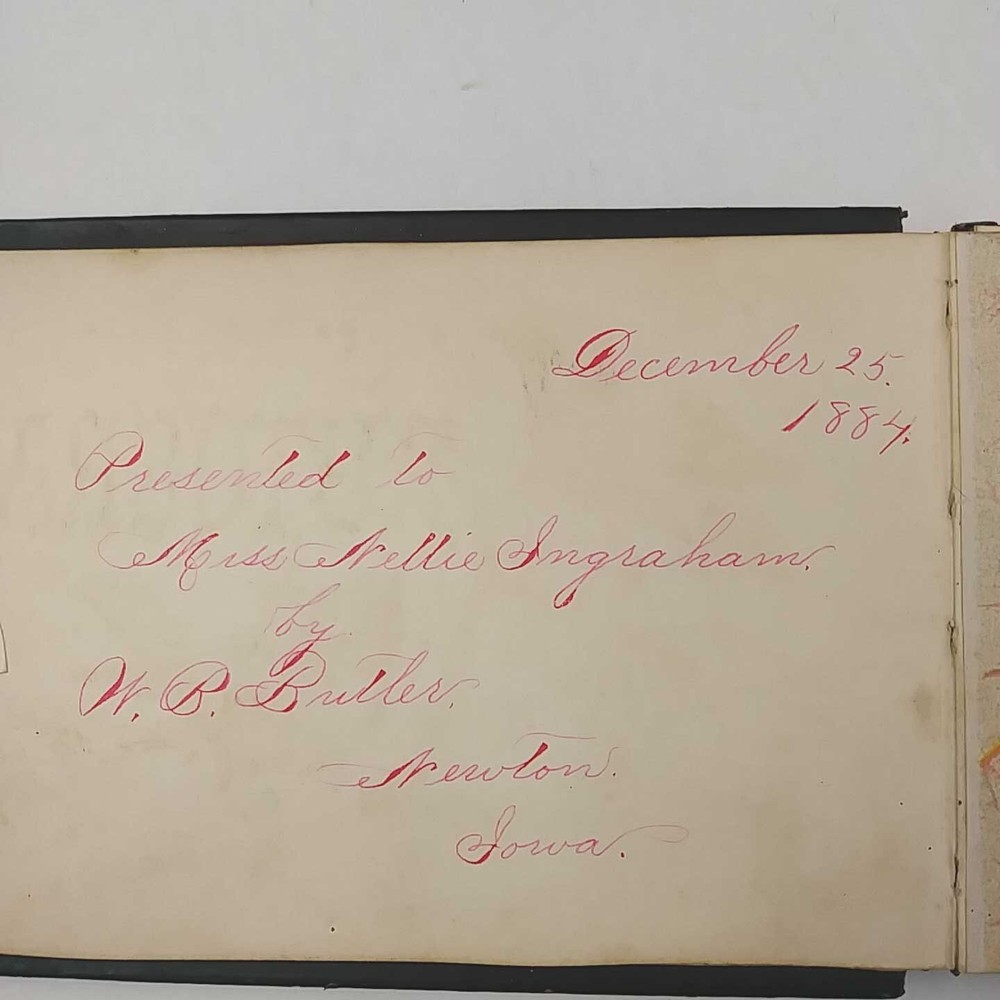 December 25.
1884.
Presented to
Miss Nellie Ingraham.
by
W. B. Butler.
Newton.
Iowa.